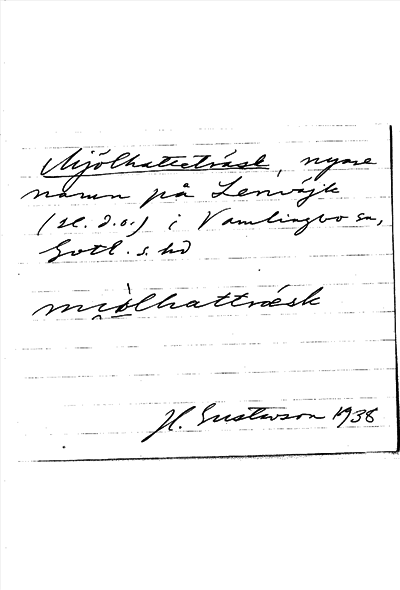 Mjölhatteträsk, nyare
namn på Lenvájk
(se. d.o.) i Vamlingbo sn,
Gotl. s. hd
mi̯òlhattræsk
H. Gustavson 1938